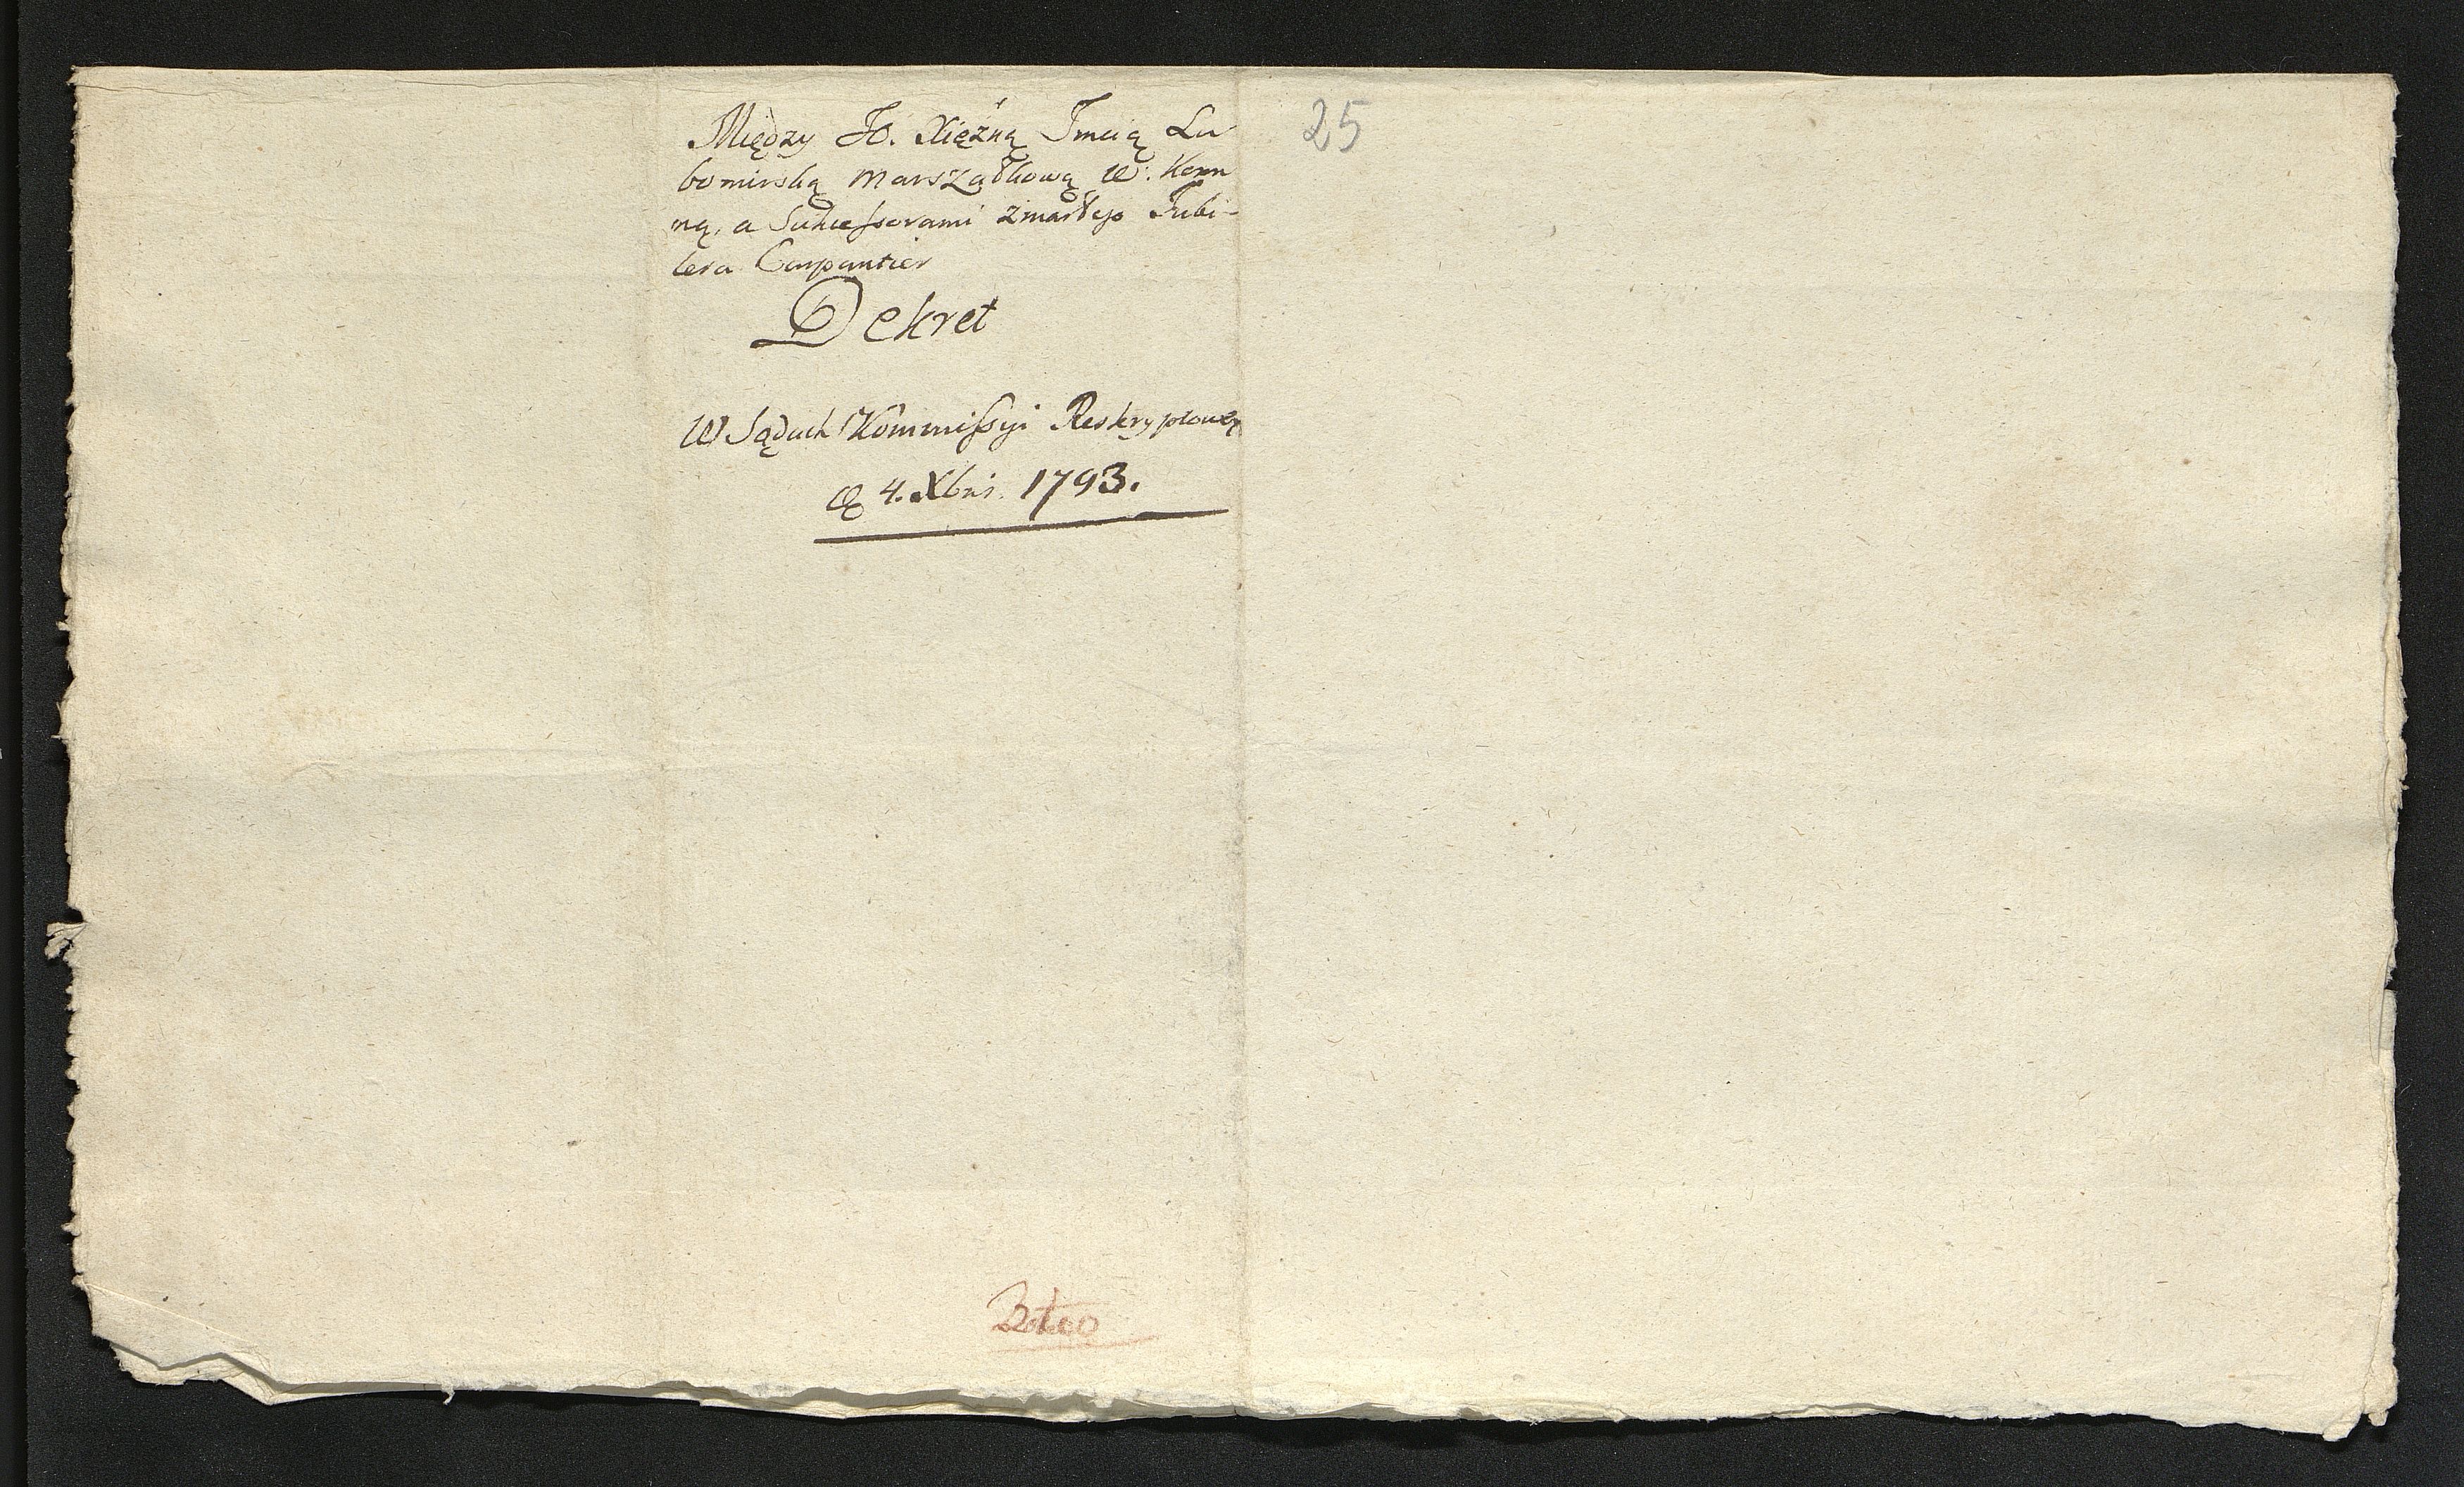 Między JO. Xiężną Jmcią Lu-
bomirską Marszałkową W. Koron
ną, a Sukcessorami zmarłego Jubi-
lera Carpantier
Dekret
W Sądach Kommissyi Reskryptowey
4. Xbris. 1793.
25